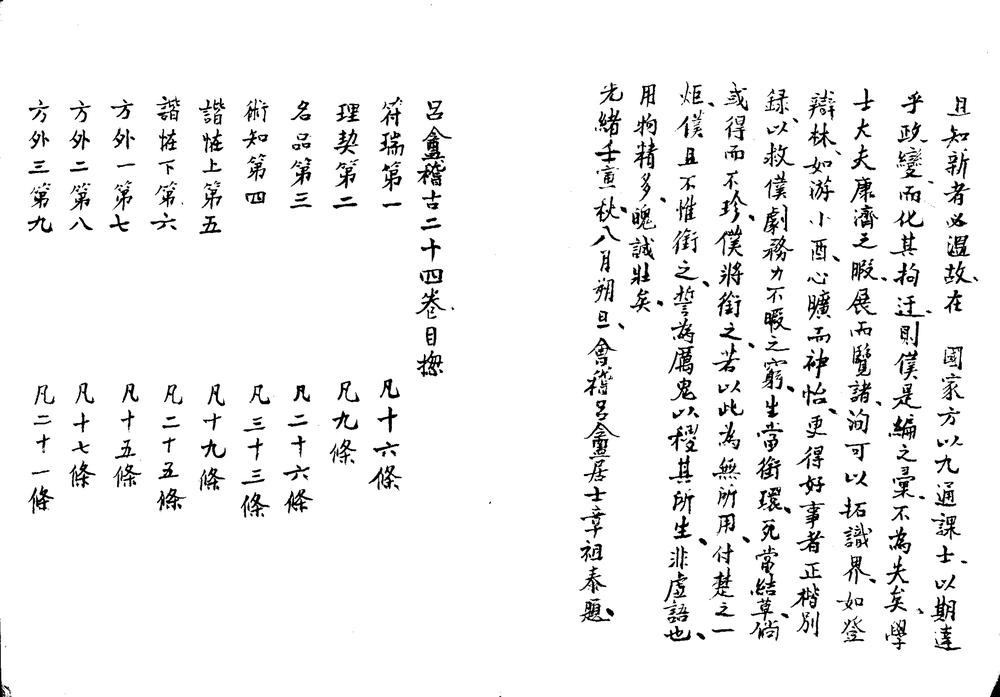 且知新者必溫故、在　國家方以九通課士、以期達
乎政變、而化其拘迂、則僕是編之彙、不為失矣、學
士大夫康濟之暇、展而覽諸、洵可以拓識界、如登
辯林、如游小酉、心曠而神怡、更得好事者正楷別
錄、以救僕劇務力不暇之窮、生當銜環、死當結草、倘
或得而不珍、僕將銜之、若以此為無所用、付楚之一
炬、僕且不惟銜之、誓為厲鬼以稷其所生、非虛語也、
用物精多、魄誠壯矣、
光緒壬寅、秋八月朔旦、會稽呂盦居士章祖泰題、
呂盦稽古二十四卷目摠
符瑞第一　凡十六條
理契第二　凡九條
名品第三　凡二十六條
術知第四　凡三十三條
諧恠上第五　凡十九條
諧恠下第六　凡二十五條
方外一第七　凡十五條
方外二第八　凡十七條
方外三第九　凡二十一條